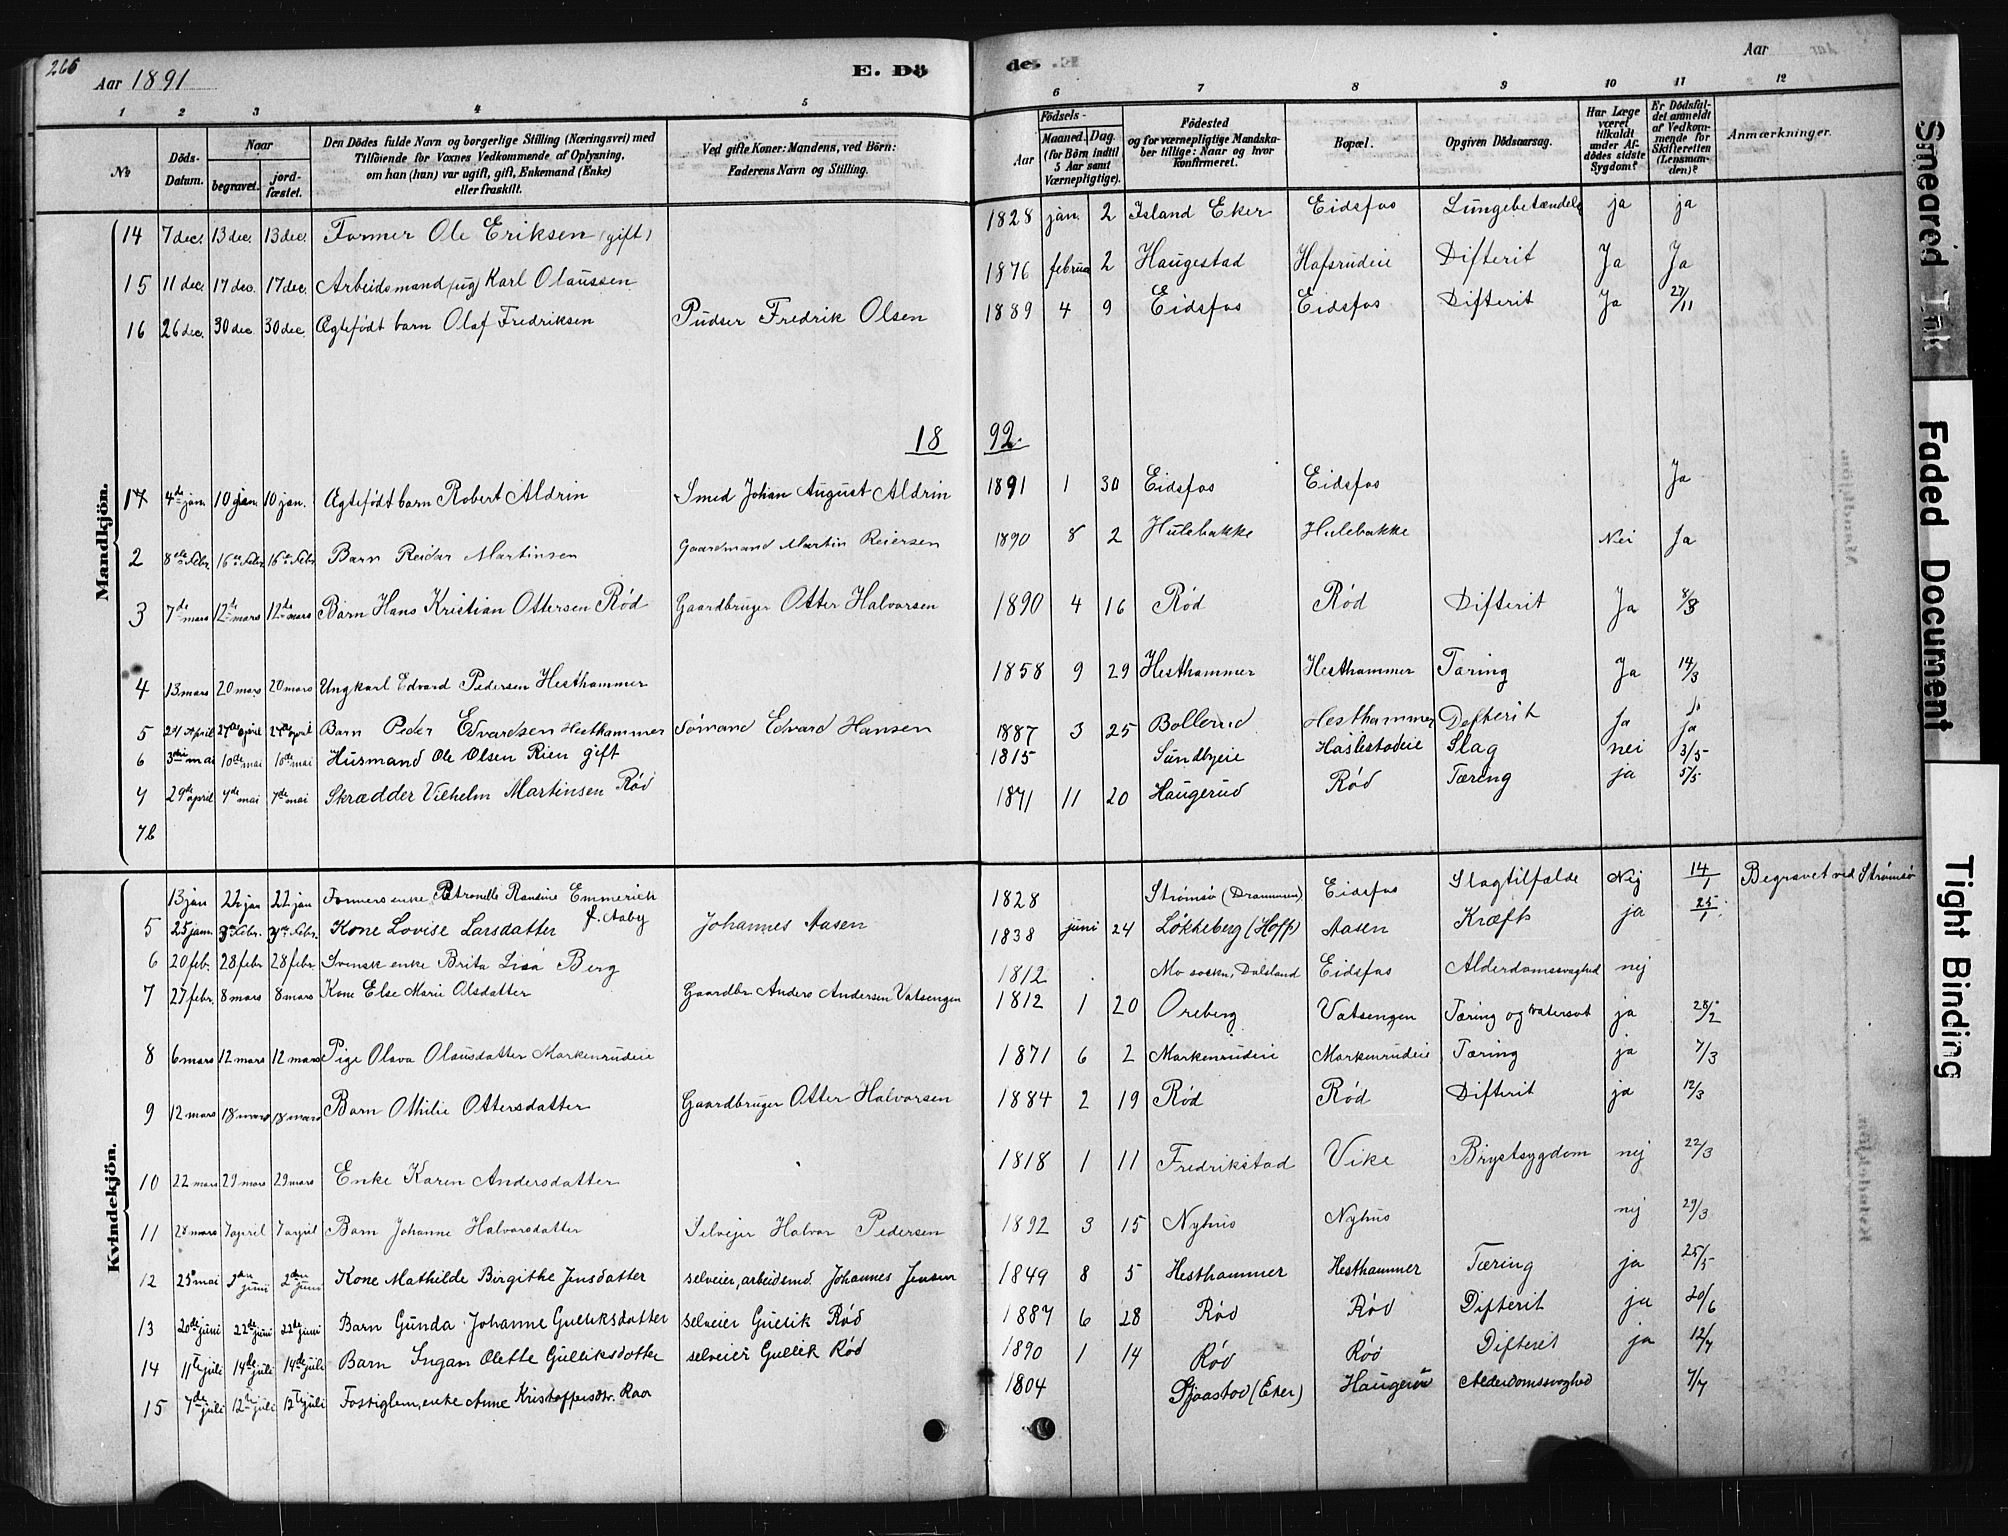 266
Aar 1891
E. Dö
de. E.
Aar
1 2 3 4 5 6 7 8 9 10 11 12
No
Döds-Datum.
Naar
begravet.
jord-fæstet.
Den Dödes fulde Navn og borgerlige Stilling (Næringsvei) med Tilföiende for Voxnes Vedkommende af Oplysning, om han (hun) var ugift, gift, Enkemand (Enke) eller fraskilt.
Ved gifte Koner: Mandens, ved Börn: Faderens Navn og Stilling.
Födsels-
Aar
Maaned. Dag.
(for Börn indtil 5 Aar samt Værnepligtige).
Födested og for værnepligtige Mandskaber tillige: Naar og hvor konfirmeret.
Bopæl.
Opgiven Dödsaarsag.
Har Læge været tilkaldt under Afdödes sidste Sygdom?
Er Dödsfaldet anmeldt af Vedkommende for Skifteretten (Lensmanden)?
Anmærkninger.
Mandkjön.
14 7 dec. 13 dec. 13 dec. Former Ole Eriksen (gift) 1828 jan. 2 Island Eker Eidsfos Lungebetændels ja ja
15 11 dec. 17 dec. 17 dec. Arbeidsmand (ug) Karl Olaussen 1876 februa 2 Haugestad Hafsrudeie Difterit Ja Ja
16 26 dec. 30 dec 30 dec Ægtefødt barn Olaf Fredriksen Pudser Fredrik Olsen 1889 4 9 Eidsfos Eidsfos Difterit Ja 27/11
18 92.
17 4de jan. 10 jan. 10 jan. Ægtefødt barn Robert Aldrin Smed Johan August Aldrin 1891 1 30 Eidsfos Eidsfos Ja
2 8de Febr. 16de Febr 16de Febr Barn Reidar Martinsen Gaardmand Martin Reiersen 1890 8 2 Hulebakke Hulebakke Nei Ja
3 7de mars 12de mars 12de mars Barn Hans Kristian Ottersen Rød Gaardbruger Otter Halvorsen 1890 4 16 Rød Rød Difterit Ja 8/3
4 13 mars 20 mars 20 mars Ungkarl Edvard Pedersen Hesthammer 1858 9 29 Hesthammer Hesthammer Tæring Ja 14/3
5 21 April 27de April 27de April Barn Peder Edvardsen Hesthammer Sømand Edvard Hansen 1887 3 25 Bollerud Hesthammer Defterit Ja ja
6 3die mai 10de mai 10de mai Husmand Ole Olsen Rien gift 1815 Sundbyeie Haslestadeie Slag nei 3/5
7 29de april 7de mai 7de mai Skrædder Vilhelm Martinsen Rød 1871 11 20 Haugerud Rød Tæring ja 5/5
7b
Kvindekjön.
13 jan 22 jan 22 jan Formers enke Petronelle Randine Emmerich f. Aaby 1828 Strømsø (Drammen) Eidsfos Slagtilfælde Nej 14/1 Begravet ved Strømsø
5 25 jan. 3de Febr. 3de Febr. Kone Lovise Larsdatter Johannes Aasen 1838 juni 24 Løkkeberg (Hoff) Aasen Kræft ja 25/1
6 20 feb. 28 febr 28 febr Svensk enke Brita Lisa Berg 1812 Mo sockn, Dalsland Eidsfos Alderdomssvaghed nej
7 27 febr. 8 mars 8 mars Kone Else Marie Olsdatter Gaardbr Anders Andersen Vatsengen 1812 1 20 Oreberg Vatsengen Tæring og vatersot ja 28/2
8 6 mars 12 mars 12 mars Pige Olava Olausdatter Markenrudeie 1871 6 2 Markenrudeie Markenrudeie Tæring ja 7/3
9 12 mars 18 mars 18 mars Barn Othilie Ottersdatter Gaardbruger Otter Halvorsen 1884 2 19 Rød Rød Difterit ja 12/3
10 22 mars 29 mars 29 mars Enke Karen Andersdatter 1818 1 11 Fredrikstad Vike Brystsygdom nej 22/3
11 28 mars 7 april 7 april Barn Johanne Halvorsdatter Selvejer Halvor Pedersen 1892 3 15 Nyhus Nyhus nej 29/3
12 25 mai 2den juni 2den juni Kone Mathilde Birgithe Jensdatter selveier, arbeidsmd. Johannes Jensen 1849 8 5 Hesthammer Hesthammer Tæring ja 25/5
13 20de juni 22de juni 22de juni Barn Gunda Johanne Gulliksdatter selveier Gullik Rød 1887 6 28 Rød Rød Difterit ja 20/6
14 11te juli 14de juli 14de juli Barn Ingan Olette Gulliksdatter selveier Gullik Rød 1890 1 14 Rød Rød Difterit ja 12/7
15 7de juli 12te juli 12te juli Fattiglem, enke Anne Kristoffersdtr. Raa 1804 Sjaastad (Eker) Haugerud Alderdomssvaghed 7/7
Smeared Ink
Faded Document
Tight Binding